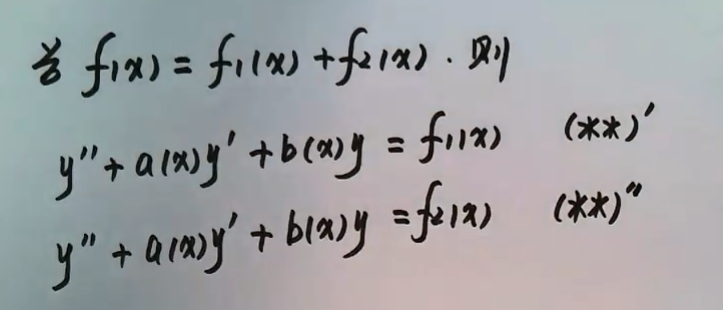 若 f(x) = f₁(x) + f₂(x) . 则
y'' + a(x)y' + b(x)y = f₁(x) (**)'
y'' + a(x)y' + b(x)y = f₂(x) (**)''